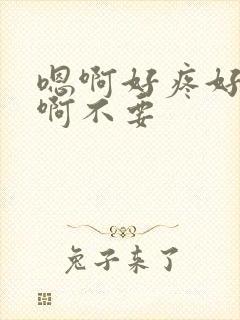 嗯啊好疼好
啊不要
兔子来了